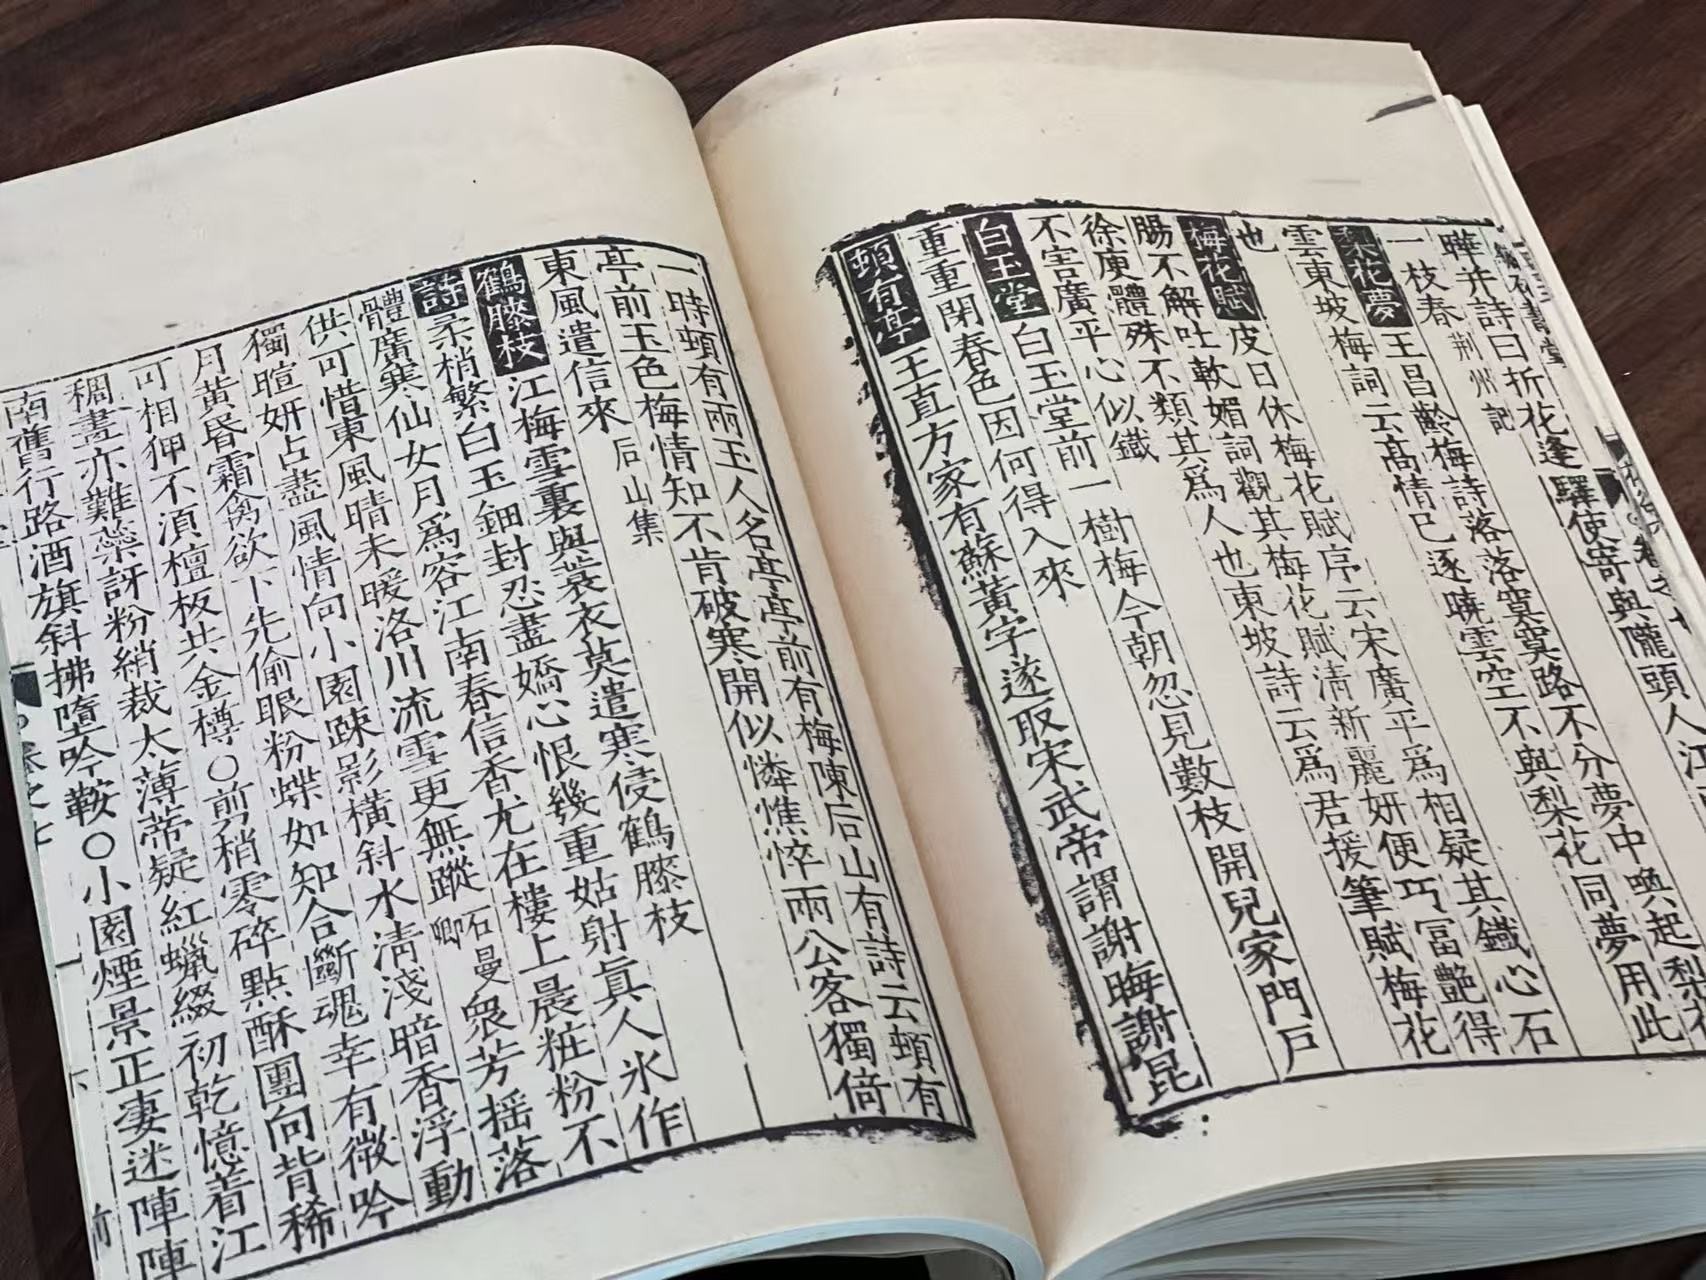 曄并詩曰折花逢驛使寄與隴頭人江
一枝春 荊州記
梨花夢王昌齡梅詩落落寞寞路不分夢中喚起梨花
雲東坡梅詞云高情已逐曉雲空不與梨花同夢用此
也
梅花賦皮日休梅花賦序云宋廣平爲相疑其鐵心石
腸不解吐軟媚詞觀其梅花賦清新麗妍便巧冨艷得
徐庾體殊不類其爲人也東坡詩云爲君援筆賦梅花
不害廣平心似鐵
白玉堂白玉堂前一樹梅今朝忽見數枝開兒家門戶
重重閉春色因何得入來
頓有亭王直方家有蘇黃字遂取宋武帝謂謝晦謝昆
一時頓有兩玉人名亭亭前有梅陳后山有詩云頓有
亭前玉色梅情知不肯破寒開似憐憔悴兩公客獨倚
東風遣信來 后山集
鶴膝枝江梅雪裏與蓑衣莫遣寒侵鶴膝枝
詩柔梢繁白玉鈿封忍盡嬌心恨幾重姑射眞人氷作
體廣寒仙女月爲容江南春信香尤在樓上晨粧粉不
供可惜東風晴未暖洛川流雪更無蹤石曼卿衆芳揺落
獨暄妍占盡風情向小園疎影橫斜水清淺暗香浮動
月黃昏霜禽欲下先偷眼粉蝶如知合斷魂幸有微吟
可相狎不湏檀板共金樽○剪梢零碎點酥團向背稀
稠畫亦難蘂訝粉綃裁太薄蒂疑紅蠟綴初乾憶着江
南舊行路酒旗斜拂墮吟鞍○小園煙景正凄迷陣陣